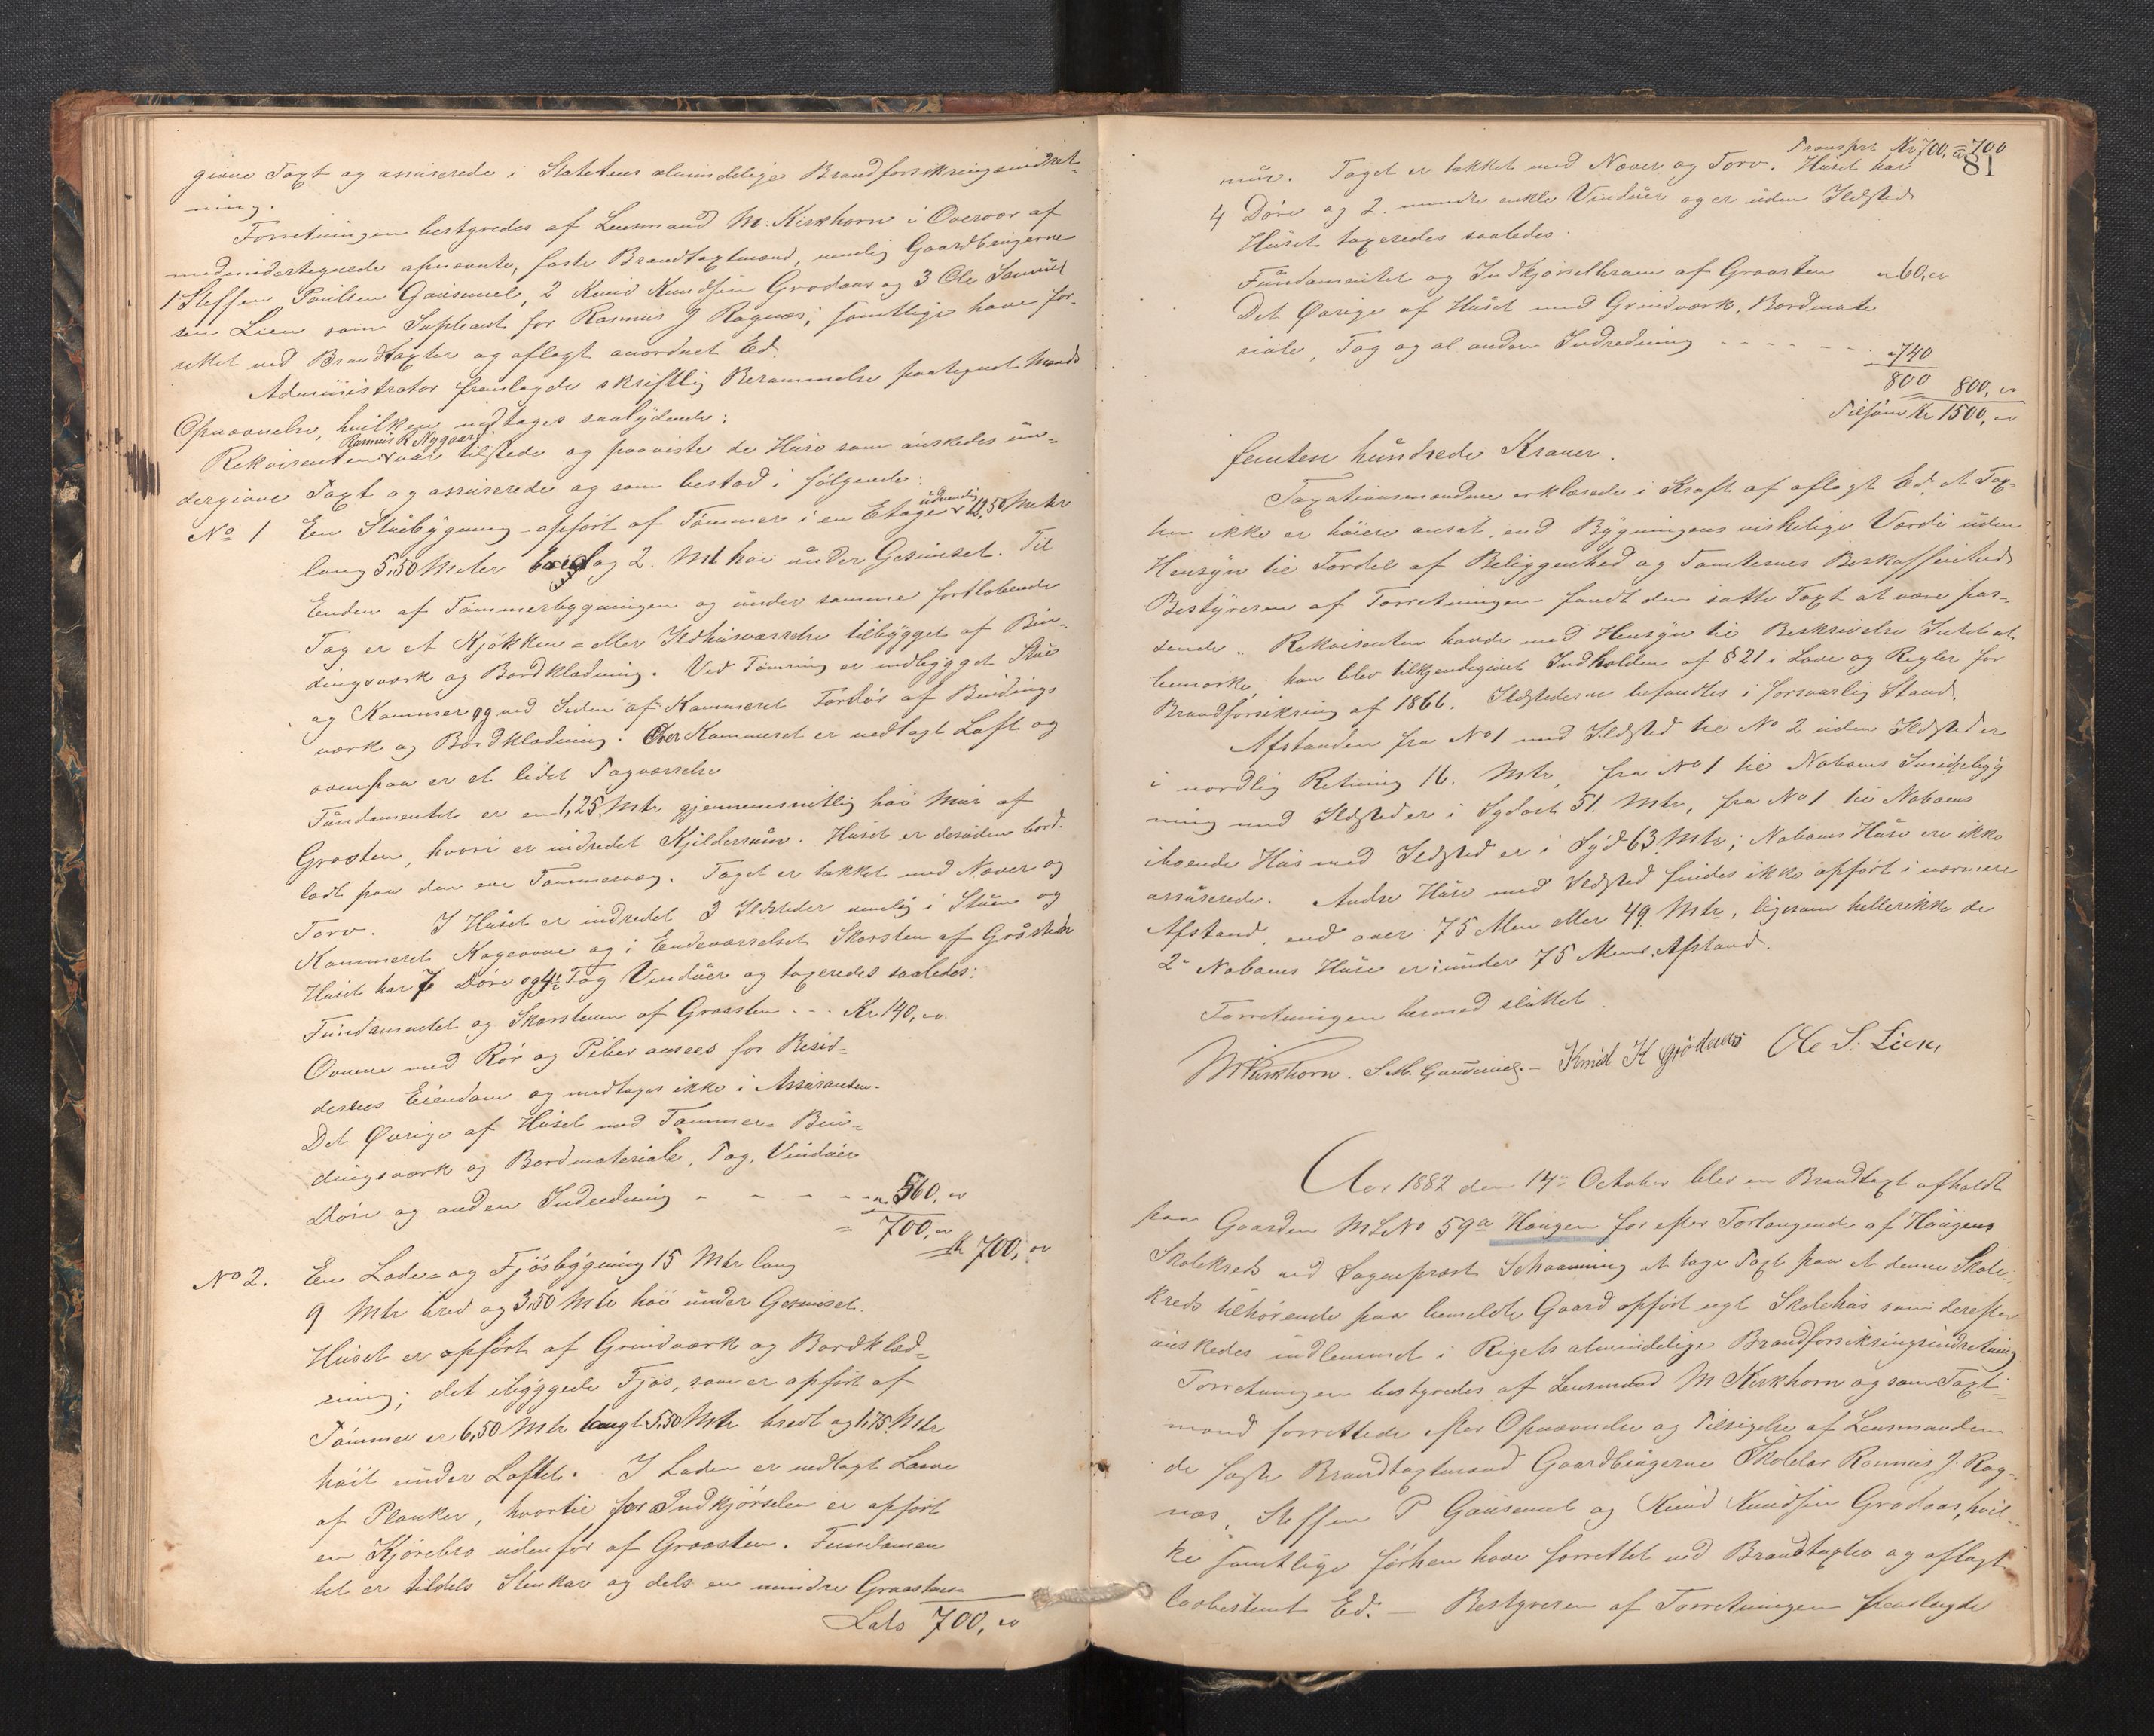 givne Taxt og assurerede i Statetens almindelige Brandforsikringsindret-
ning.
Forretningen bestyredes af Lensmand M. Kirkhorn i Overvær af
medundertegnede opnævnte, faste Brandtaxtmænd, nemlig Gaardbrugerne
1 Steffen Paulsen Gausemel, 2 Knud Knudsen Grodaas og 3 Ole Samuel
sen Lien som Supleant for Rasmus J Ragnæs; samtlige have for-
rettet ved Brandtaxter og aflagt anordnet Ed.
Administrator fremlagde skriftlig Berammelse paategnet Mænds
Opnævnelse, hvilken vedtages saalydende:
Rasmus R Nygaard
Rekvirenten var tilstede og paaviste de Huse som ønskedes un-
dergivne Taxt og assurerede og som bestod i følgende:
No 1 En Stuebygning opført af Tømmer i en Etage udvendig 12,50 Meter
lang 5,50 Meter bred og 2. Mt høi under Gesimset. Til
Enden af Tømmerbygningen og under samme fortløbende
Tag er et Kjøkken- eller Ildhusværrelse tilbygget af Bin-
dingsværk og Bordklædning. Ved Tømring er indbygget Stue
og Kammer og ved Siden af Kammeret Fordør af Bindings
værk og Bordklædning. Over Kammeret er nedlagt Loft og
ovenpaa er et lidet Tagværrelse
Fundamentet er en 1,25 Mtr gjennemsnitlig høi Mur af
Graasten, hvori er indredet Kjelderrum. Huset er desuden bord-
lædt paa den ene Tømmervæg. Taget er tækket med Næver og
Torv. I Huset er indredet 3 Ildsteder nemlig i Stuen og
Kammeret Kogeovne og i Endeværrelset Skorsten af Gråsten
Huset har 7 Døre og 4 Fag Vinduer og taxeredes saaledes:
Fundamentet og Skorstenen af Graasten . - . Kr 140, "
Ovnene med Rør og Piber ansees for Besid-
derens Eiendom og medtages ikke i Assurancen.
Det Øvrige af Huset med Tømmer- Bin-
dingsværk og Bordmateriale, Tag, Vinduer
Døre og anden Indredning - - - - - " 560, "
= 700, "
Kr 700, "
No 2. En Lade- og Fjøsbygning 15 Mtr lang
9 Mtr bred og 3,50 Mtr høi under Gesimset.
Huset er opført af Grindværk og Bordklæd-
ning; det ibyggede Fjøs, som er opført af
Tømmer er 6,50 Mtr langt 5,50 Mtr bredt og 1,75 Mtr
høit under Loftet. I Laden er nedlagt Laave
af Planker, hvortil for Indkjørselen er opført
en Kjørebro udenfor af Graasten. Fundamen
tet er tildels Stenkar og dels en mindre Graastens-
Lats 700, "
Transprt Kr 700, = 700
81
mur. Taget er tækket med Næver og Torv. Huset har
4 Døre og 2. mindre enkle Vinduer og er uden Ildsted
Huset taxeredes saaledes.
Fundamentet og Indkjørselbroen af Graasten " 60, "
Det Øvrige af Huset med Grindværk, Bordmate
riale, Tag og al anden Indredning - - - - - - " 740
800 800, "
Tilsam Kr 1500, "
femten hundrede Kroner.
Taxationsmændene erklærede i Kraft af aflagt Ed, at Tax-
ten ikke er høiere ansat, end Bygningens virkelige Værdi uden
Hensyn til Fordel af Beliggenhed og Tomternes Beskaffenhed
Bestyreren af Forretningen fandt den satte Taxt at være pas-
sende. Rekvirenten havde med Hensyn til Beskrivelse Intet at
bemærke; han blev tilkjendegivet Indholden af § 21 i Love og Regler for
Brandforsikring af 1866. Ildstederne befandtes i forsvarlig Stand.
Afstanden fra No 1 med Ildsted til No 2 uden Ildsted er
i nordlig Retning 16. Mtr, fra No 1 til Naboens
ning med Ildsted er i Sydost 51. Mtr, fra No 1 til Naboens
iboende Hus med Ildsted er i Syd 63 Mtr; Naboens Huse ere ikke
assurerede. Andre Huse med Ildsted findes ikke opført i nærmere
Afstand, end over 75 Alen eller 49 Mtr, ligesom hellerikke de
2de Naboens Huse er under 75 Alens Afstand.
Forretningen hermed sluttet.
MKirkhorn. S. P. Gausemel. - Knud K Grödaas Ole S. Lien,
Aar 1882 den 14de October blev en Brandtaxt afholdt
paa Gaarden ML No 59a Haugen for efter Forlangende af Haugens
Skolekreds ved Sogneprest Schaanning at tage Taxt paa et denne Skole-
kreds tilhørende paa bemeldte Gaard opført nyt Skolehus som derefter
ønskedes indlemmet i Rigets almindelige Brandforsikringsindretning
Forretningen bestyredes af Lensmand M Kirkhorn og som Taxt-
mænd forrettede efter Opnævnelse og Tilsigelse af Lensmanden
de faste Brandtaxtmænd Gaardbrugerne Skolelær Rasmus J. Rag-
næs, Steffen P Gausemel og Knud Knudsen Grodaas, hvil-
ke samtlige førhen have forrettet ved Brandtaxter og aflagt
lovbestemt Ed. - Bestyreren af Forretningen fremlagde